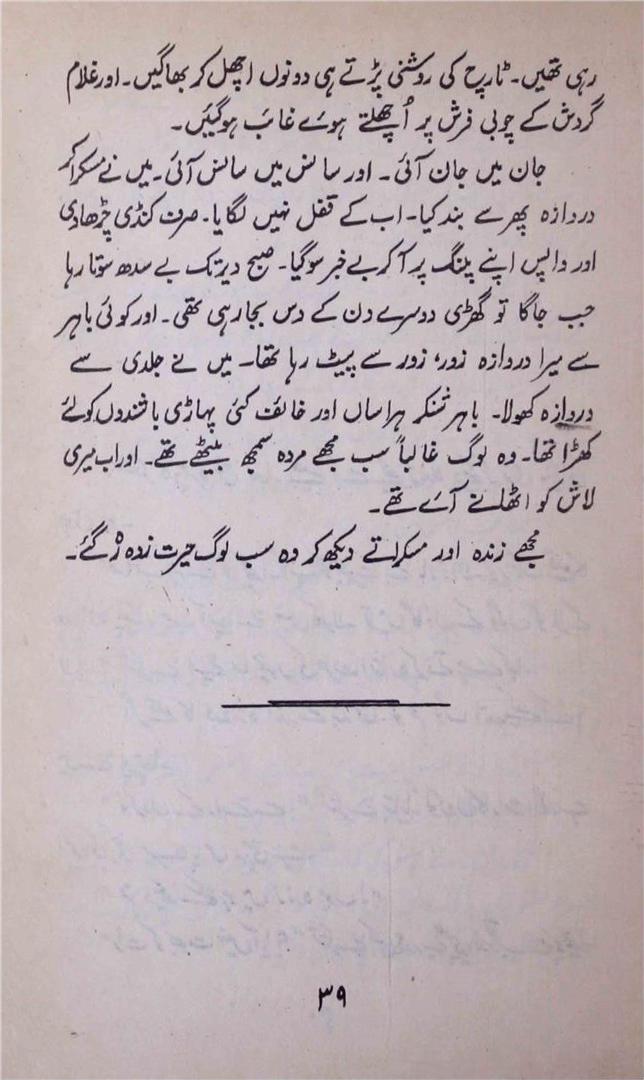 رہی تھیں۔ ٹارچ کی روشنی پڑتے ہی دونوں اچھل کر بھاگیں۔ اور غلام
گردش کے چوبی فرش پر اُچھلتے ہوئے غائب ہوگئیں۔
جان میں جان آئی۔ اور سانس میں سانس آئی۔ میں نے مسکرا کر
دروازہ پھر سے بند کیا۔ اب کے قفل نہیں لگایا۔ صرف کنڈی چڑھا دی
اور واپس اپنے پلنگ پر آ کر بے خبر سو گیا۔ صبح دیر تک بے سدھ سوتا رہا
جب جاگا تو گھڑی دوسرے دن کے دس بجا رہی تھی۔ اور کوئی باہر
سے میرا دروازہ زور، زور سے پیٹ رہا تھا۔ میں نے جلدی سے
دروازہ کھولا۔ باہر شنکر ہراساں اور خائف کئی پہاڑی باشندوں کو لئے
کھڑا تھا۔ وہ لوگ غالباً سب مجھے مردہ سمجھ بیٹھے تھے۔ اور اب میری
لاش کو اٹھانے آئے تھے۔
مجھے زندہ اور مسکراتے دیکھ کر وہ سب لوگ حیرت زدہ رہ گئے۔
۳۹